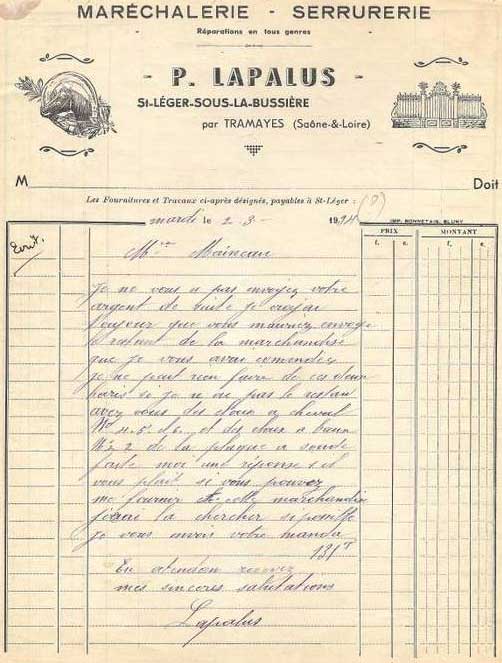 MARÉCHALERIE - SERRURERIE
Réparations en tous genres
- P. LAPALUS -
St-LÉGER-SOUS-LA-BUSSIÈRE
par TRAMAYES (Saône-&-Loire)
M Doit
Les Fournitures et Travaux ci-après désignés, payables à St-Léger :
mardi le 2-3- 19
IMP. BONNETAIN, CLUNY
PRIX MONTANT
f. c. f. c.
Ecrit.
Mr
Je ne vous a pas envoyez votre
argent de suite je croyai
toujour que vous envoye
le restant de la marchandise
que je vous avai comendez
je ne peut rien faire de ces deux
si je n ai pas le restan
avez vous des cloux a cheval
No 4. 5. et 6. et des cloux a bœux
No 2 de la plaque a soude
faite moi une réponse s il
vous plait si vous pouvez
me fournir cette marchandise
jirai la chercher si possible
Je vous envois votre manda
181 f
En atendan recevez
mes sinceres salutations
Lapalus